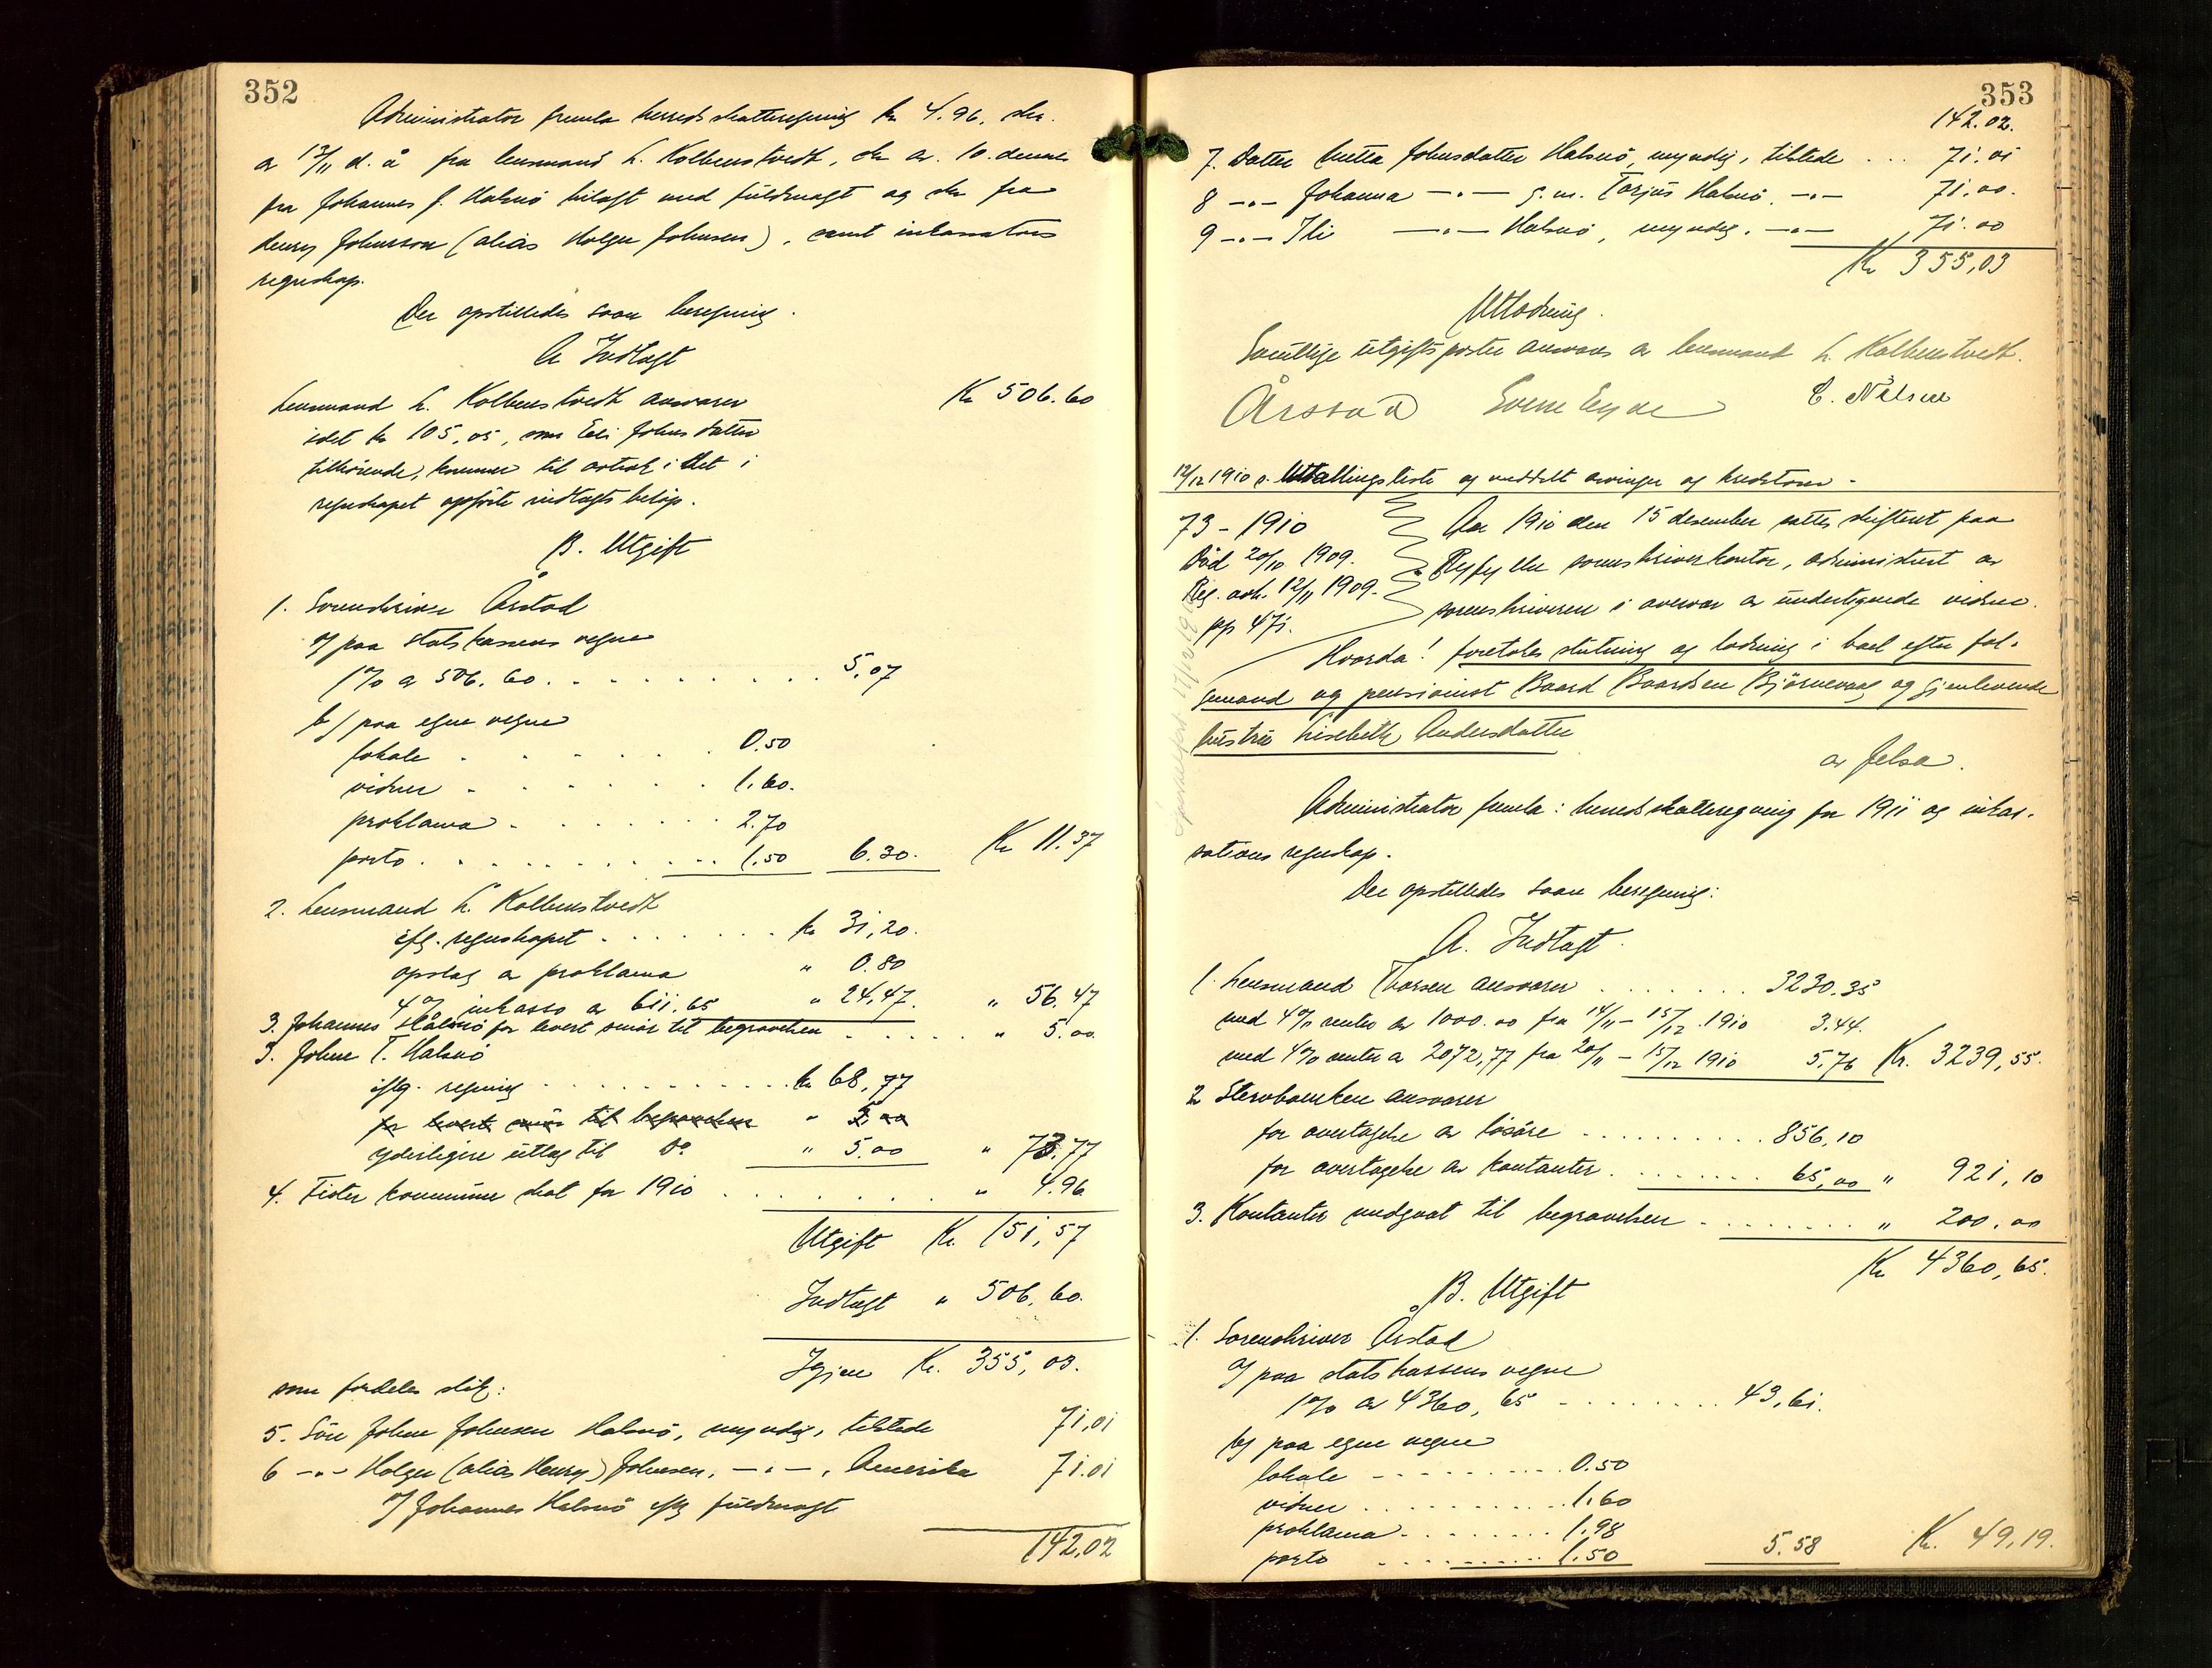 352
Administrator fremla herredsskatteregning kr 4.96, skr.
av 13/11 d. å fra lensmand L. Kolbenstvedt, skr av. 10. dennes
fra Johannes J. Halsnö bilagt med fuldmagt og skr fra
Henry Johnson (alias Holger Johnsen), samt inkassations
regnskap.
Der opstilledes saan beregning.
A Indtægt
Lensmand L. Kolbenstvedt ansvarer Kr 506.60
idet kr 105,05, som Eli Johnsdatter
tilhörende, kommer til avtrek i det i
regnskapet opförte indtægts belöp.
B. Utgift
1. Sorenskriver Årstad
a/ paa statskassens vegne
1% a 506.60 . . . . . . . . . 5,07
b/ paa egne vegne
lokale . . . . . . 0.50
vidner . . . . . . 1.60.
proklama . . . . . . 2.70
porto . . . . . . . 1.50 6.30. Kr 11.37
2. Lensmand L. Kolbenstvedt
iflg. regnskapet . . . . . . kr 31,20.
opslag av proklama " 0.80
4% inkasso av 611.65 " 24,47. " 56.47
3. Johannes Halsnö for levert smör til begravelsen . . . . . " 5.00.
3. Johne T. Halsnö
iflg. regning . . . . . . . . kr 68,77
for levert smör til begravelsen " 5.00
yderligere utlæg til Do " 5.00 " 73.77
4. Fister kommune skat for 1910 . . . . . . . " 4.96
Utgift Kr. 151,57
Indtægt " 506,60.
Igjen Kr. 355,03.
som fordeles slik:
5. Sön Johne Johnsen Halsnö, myndig, tilstede 71,01
6 -"- Holger (alias Henry) Johnsen, -"-, Amerika 71.01
v/ Johannes Halsnö iflg fuldmagt
142,02
353
142.02.
7. Datter Metta Johnsdatter Halsnö, myndig, tilstede . . . 71.01
8 -"- Johanna -"- g.m. Torjus Halsnö. -"- 71.00.
9 -"- Eli -"- Halsnö, myndig. -"- 71.00
Kr 355,03
Utlodning.
Samtlige utgiftsposter ansvares av lensmand L. Kolbenstvedt.
Årstad Svein Eyde E. Nilsen
12/12 1910 s. Utdelingsliste og meddelt arvinger og kreditorer -
73 - 1910
Död 20/10 1909.
Reg. anh. 12/11 1909.
pp 471.
Aar 1910 den 15 desember sattes skifteret paa
Ryfylke sorenskriverkontor, administrert av
sorenskriveren i overvær av undertegnede vidner.
Hvorda! foretokes slutning og lodning i boet efter fol-
gemand og pensionist Baard Baardsen Björnevaag og gjenlevende
hustru Lisebeth Andersdatter
av Jelsa.
Administrator fremla: herredsskatteregning for 1911 og inkas-
sations regnskap.
Der opstilledes saan beregning:
A. Indtægt.
1. Lensmand Thorsen ansvarer . . . . . . . 3230.35
med 4% renter av 1000.00 fra 14/11 - 15/12. 1910 3.44.
med 4% renter a 2072,77 fra 20/11 - 15/12 1910 5,76 Kr. 3239,55.
2 Stervboenken ansvarer
for overtagelse av lösöre . . . . . . . . 856,10
for overtagelse av kontanter . . . . . . . 65,00 " 921,10
3. Kontanter medgaat til begravelsen . . . . . . . " 200.00
Kr 4360,65.
B. Utgift
1. Sorenskriver Årstad
a/ paa statskassens vegne
1% av 4360,65 . . . . . . . . 43,61.
b/ paa egne vegne
lokale . . . . . . . . 0.50
vidner . . . . . . . . 1.60
proklama . . . . . . . 1.98
porto . . . . . . . . 1.50 5.58 Kr. 49,19.